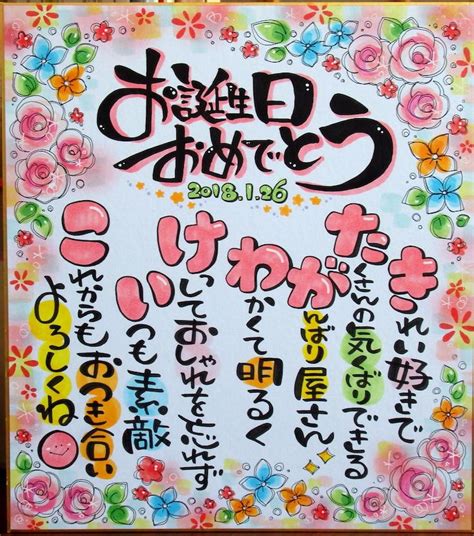 お誕生日
おめでとう
2018.1.26
きれい好きで
たくさんの気くばりできる
がんばり屋さん
わかくて明るく
けっしておしゃれを忘れず
いつも素敵
これからもおつき合い
よろしくね